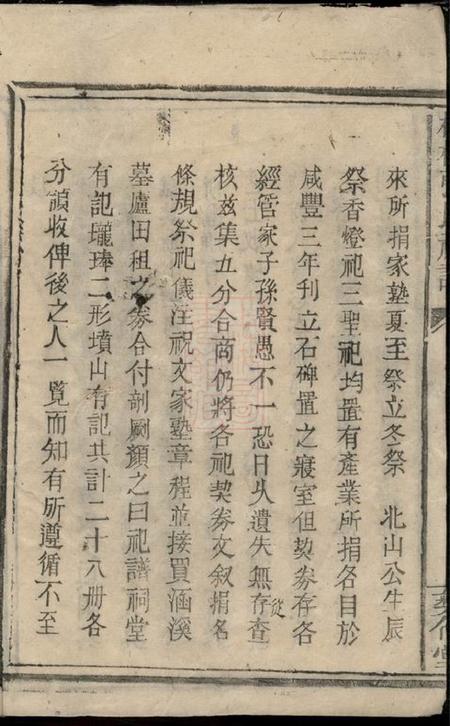 來所捐家塾夏至祭立冬祭 北山公生辰
祭香燈祀三聖祀均置有產業所捐各目於
咸豐三年刊立石碑置之寢室但契券存各
經管家子孫賢愚不一恐日久遺失無存從查
核兹集五分合商仍將各祀契券文叙捐名
條規祭祀儀注祝文家塾章程並接買涵溪
墓廬田租之券合付剞劂顏之曰祀譜祠堂
有記壠琫二形墳山有記共計二十八冊各
分領收俾後之人一覽而知有所遵循不至